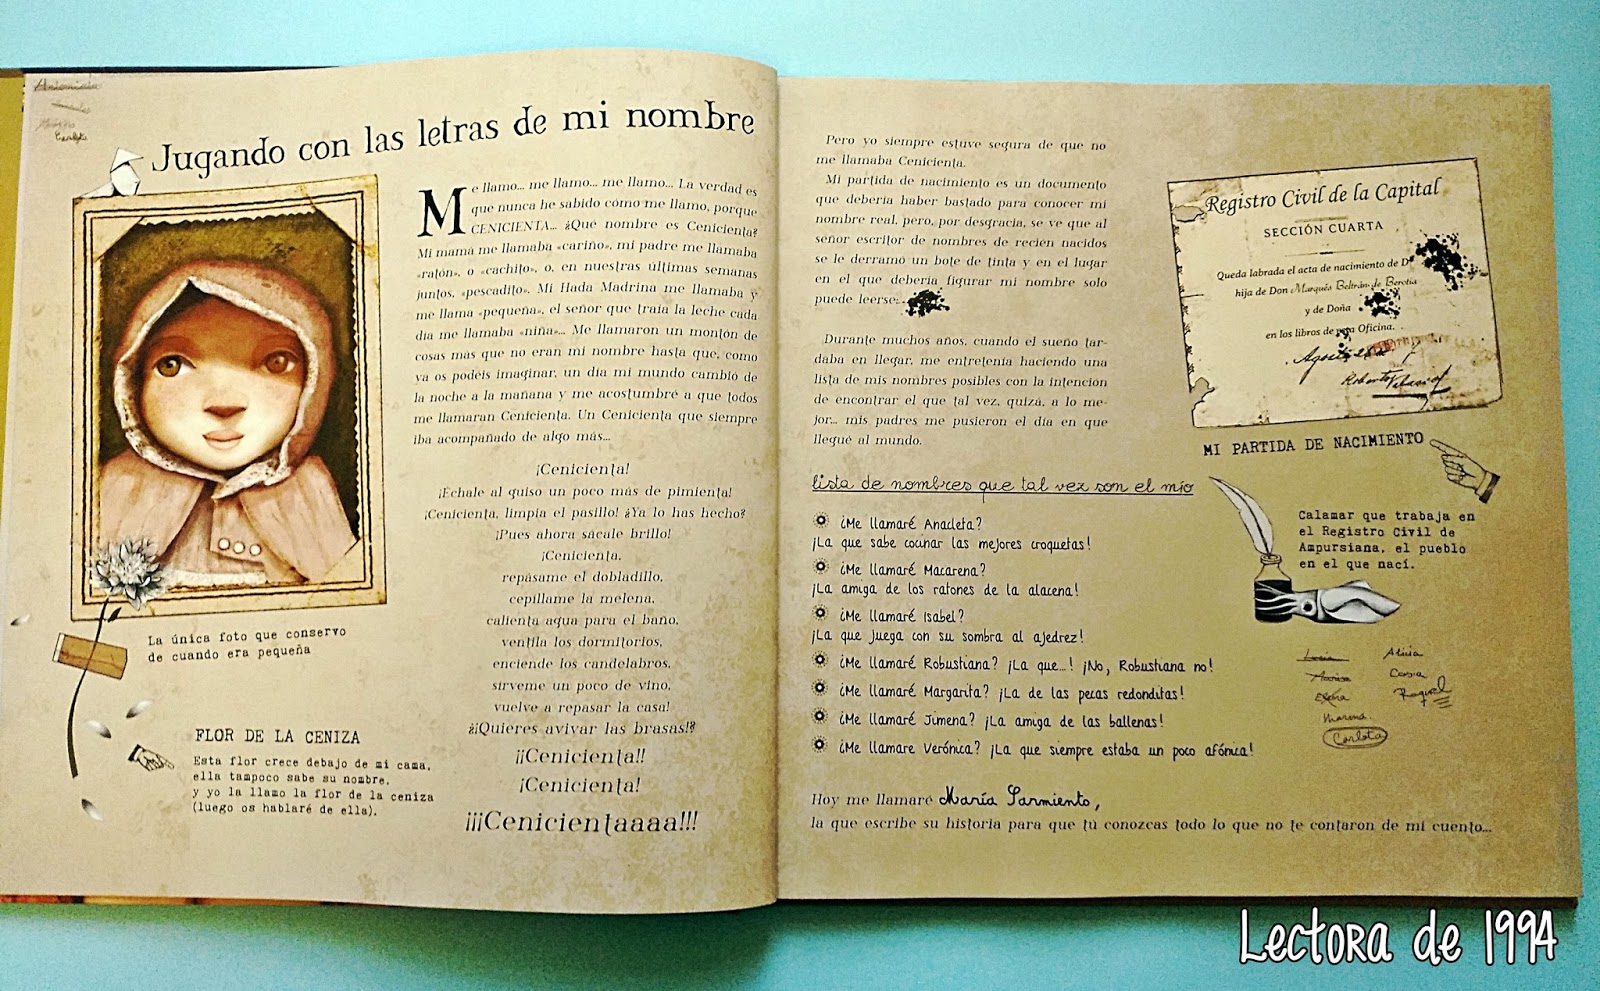 Carlota
Jugando con las letras de mi nombre
Me llamo... me llamo... me llamo... La verdad es
que nunca he sabido cómo me llamo, porque
CENICIENTA... ¿Qué nombre es Cenicienta?
Mi mamá me llamaba «cariño», mi padre me llamaba
«ratón», o «cachito», o, en nuestras últimas semanas
juntos, «pescadito». Mi Hada Madrina me llamaba y
me llama «pequeña», el señor que traía la leche cada
día me llamaba «niña»... Me llamaron un montón de
cosas más que no eran mi nombre hasta que, como
ya os podéis imaginar, un día mi mundo cambió de
la noche a la mañana y me acostumbré a que todos
me llamaran Cenicienta. Un Cenicienta que siempre
iba acompañado de algo más...
¡Cenicienta!
¡Échale al guiso un poco más de pimienta!
¡Cenicienta, limpia el pasillo! ¿Ya lo has hecho?
¡Pues ahora sácale brillo!
¡Cenicienta,
repásame el dobladillo,
cepíllame la melena,
calienta agua para el baño,
ventila los dormitorios,
enciende los candelabros,
sírveme un poco de vino,
vuelve a repasar la casa!
¿¡Quieres avivar las brasas!?
¡¡Cenicienta!!
¡Cenicienta!
¡¡¡Cenicientaaaa!!!
La única foto que conservo
de cuando era pequeña
FLOR DE LA CENIZA
Esta flor crece debajo de mi cama,
ella tampoco sabe su nombre,
y yo la llamo la flor de la ceniza
(luego os hablaré de ella).
Pero yo siempre estuve segura de que no
me llamaba Cenicienta.
Mi partida de nacimiento es un documento
que debería haber bastado para conocer mi
nombre real, pero, por desgracia, se ve que al
señor escritor de nombres de recién nacidos
se le derramó un bote de tinta y en el lugar
en el que debería figurar mi nombre solo
puede leerse:
Durante muchos años, cuando el sueño tar-
daba en llegar, me entretenía haciendo una
lista de mis nombres posibles con la intención
de encontrar el que tal vez, quizá, a lo me-
jor... mis padres me pusieron el día en que
llegué al mundo.
Lista de nombres que tal vez son el mío
¿Me llamaré Anacleta?
¡La que sabe cocinar las mejores croquetas!
¿Me llamaré Macarena?
¡La amiga de los ratones de la alacena!
¿Me llamaré Isabel?
¡La que juega con su sombra al ajedrez!
¿Me llamaré Robustiana? ¡La que...! ¡No, Robustiana no!
¿Me llamaré Margarita? ¡La de las pecas redonditas!
¿Me llamaré Jimena? ¡La amiga de las ballenas!
¿Me llamare Verónica? ¡La que siempre estaba un poco afónica!
Hoy me llamaré María Sarmiento,
la que escribe su historia para que tú conozcas todo lo que no te contaron de mi cuento...
Registro Civil de la Capital
SECCIÓN CUARTA
Queda labrada el acta de nacimiento de D
hija de Don Marqués Beltrán de Berotia
y de Doña
en los libros de esta Oficina.
Agosto
Roberto
MI PARTIDA DE NACIMIENTO
Calamar que trabaja en
el Registro Civil de
Ampursiana, el pueblo
en el que nací.
Lucía Alicia
Marisa
Elena Raquel
Marina
Carlota
Lectora de 1994